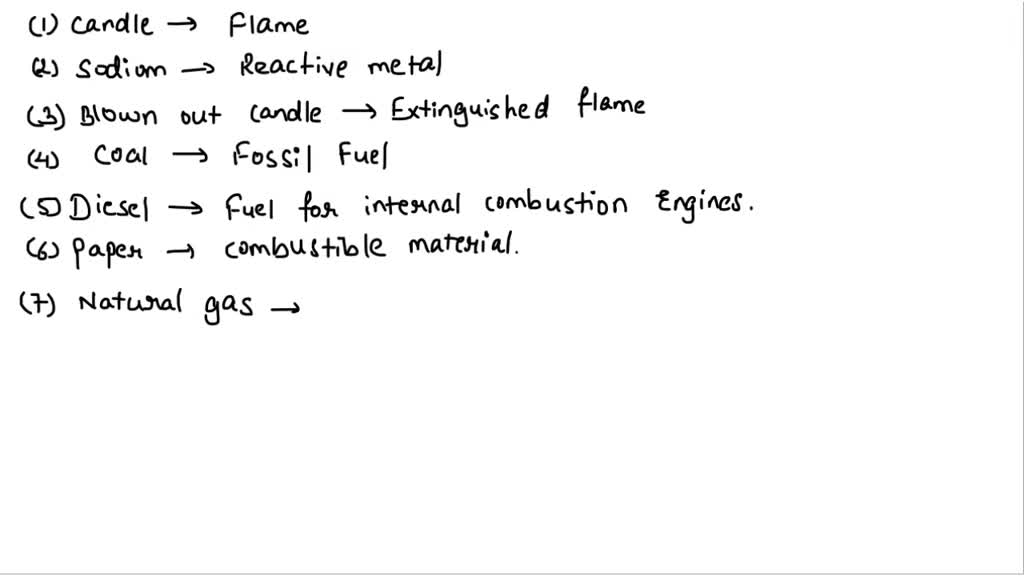 (1) Candle → Flame
(2) Sodium → Reactive metal
(3) Blown out candle → Extinguished flame
(4) Coal → Fossil Fuel
(5) Diesel → Fuel for internal combustion Engines.
(6) Paper → combustible material.
(7) Natural gas →